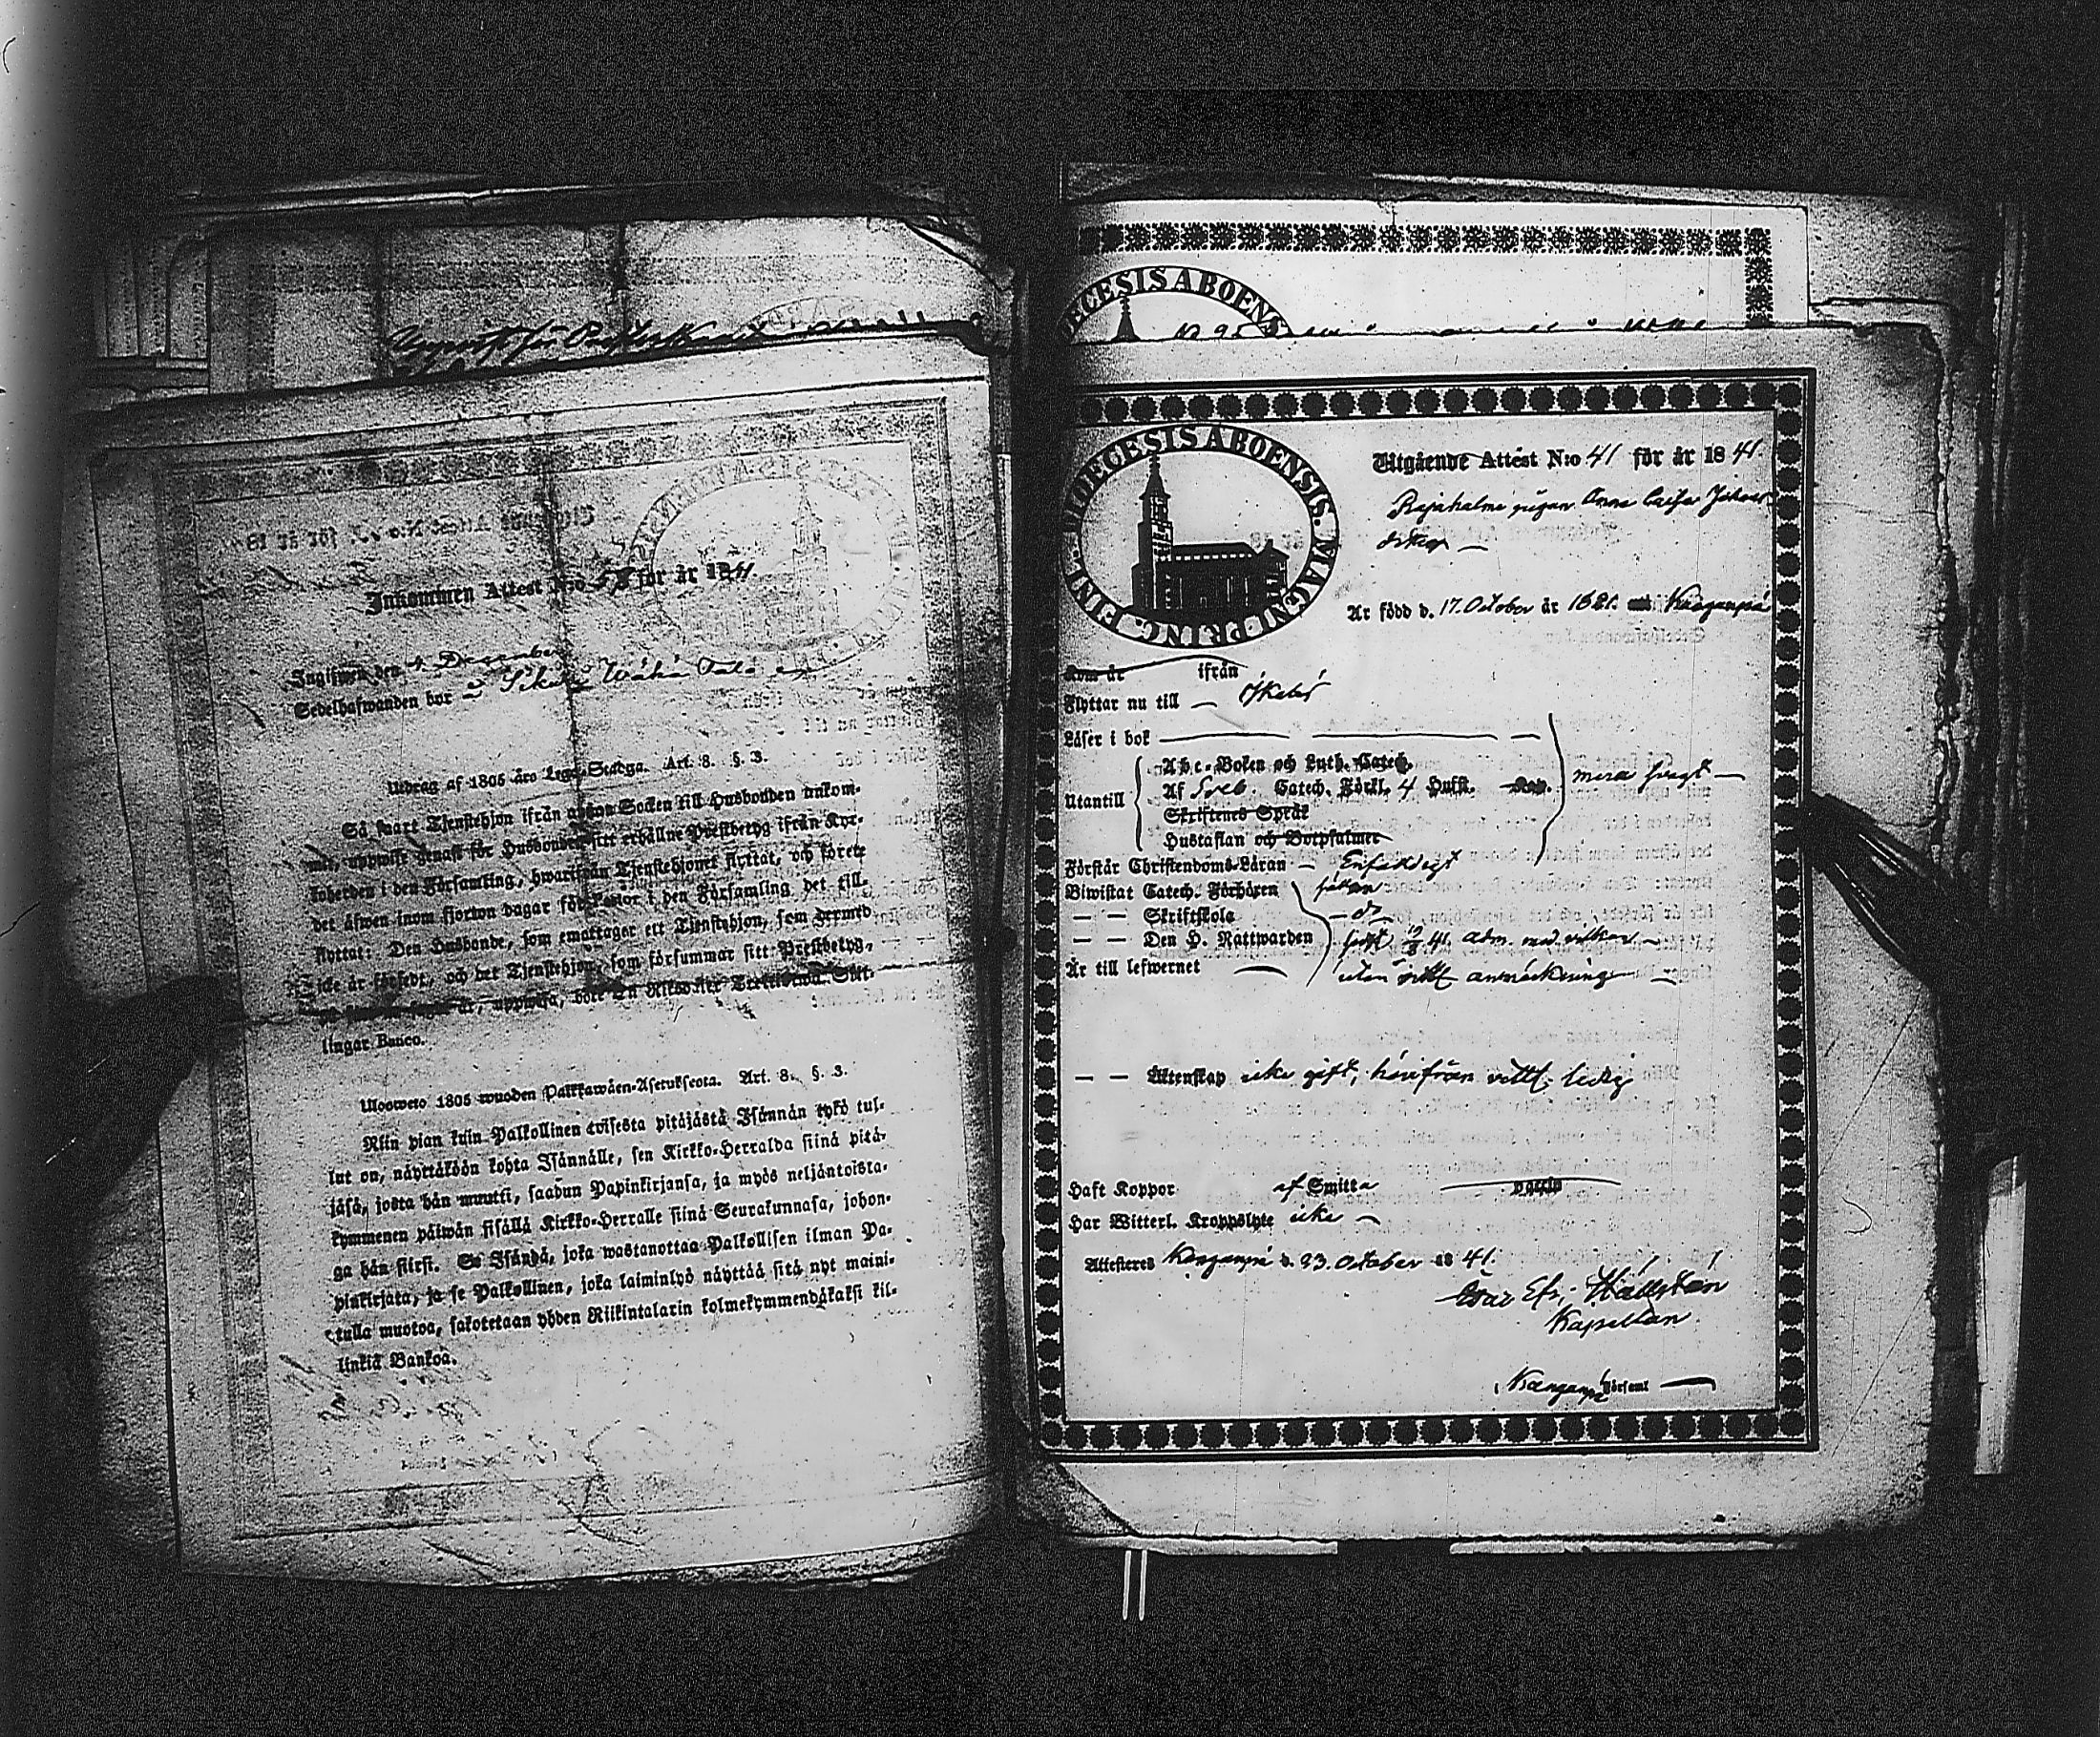 Inkommen Attest N:o 58 för år 1841.
Ingifwen den 4 December
Sedelhafwanden bor
Utdrag af 1805 års Lego-Stadga. Art. 8. §. 3.
Så snart Tjenstehjon ifrån annan Socken till Husbonden ankom-
mit, uppwise genast för Husbonden sitt erhållne Prestbetyg ifrån Kyr-
koherden i den Församling, hwarifrån Tjenstehjonet flyttat, och förete
det äfwen inom fjorton dagar för Pastor i den Församling det till-
flyttat: Den Husbonde, som emottager ett Tjenstehjon, som dermed
icke är försedt, och det Tjenstehjon, som försummar sitt Prestbetyg,
uppwisa, böte En Riksdaler Trettiotwå Skil-
lingar Banco.
Ulosweto 1805 wuoden Palkkawäen-Asetuksesta. Art. 8. §. 3.
Niin pian kuin Palkollinen toisesta pitäjästä Isännän tykö tul-
lut on, näyttäköön kohta Isännälle, sen Kirkko-Herralda siinä pitä-
jäsä, josta hän muutti, saadun Papinkirjansa, ja myös neljäntoista-
kymmenen päiwän sisällä Kirkko-Herralle siinä Seurakunnasa, johon-
ga hän siirsi. Se Isändä, joka wastanottaa Palkollisen ilman Pa-
pinkirjata, ja se Palkollinen, joka laiminlyö näyttää sitä nyt maini-
tulla muotoa, sakotetaan yhden Riikintalarin kolmekymmendäkaksi kil-
linkiä Bankoa.
DIOECESIS ABOENS
N 95
DIOECESIS ABOENSIS. MAGNI PRINC. FINL.
Utgående Attest N:o 41 för år 1841.
Rajahalme pigan Anna Caisa Johans
dotter —
Är född d. 17. October år 1821. Kangånpä
Kom år ifrån
Flyttar nu till — Ikalis
Läser i bok
Utantill
Abc-Boken och Luth. Catech.
Af Sveb. Catech. Förkl. 4 Hufst.
Skriftenes Språk
Hustaflan och Botpsalmer
mera swagt —
Förstår Christendoms-Läran — Enfaldigt
Biwistat Catech. Förhören
— — Skriftskola — do
— — Den H. Nattwarden sedt 41. adm. med vilkor —
Är till lefwernet utan witt. anmärkning —
— — Äktenskap icke gift, härifrån vittl. ledig
Haft Koppor af Smitta Vaccin
Har Witterl. Kroppslyte icke —
Attesteras Kangånpä d. 23. October 1841.
Hällstén
Kapellan
i Kangånpä Församl